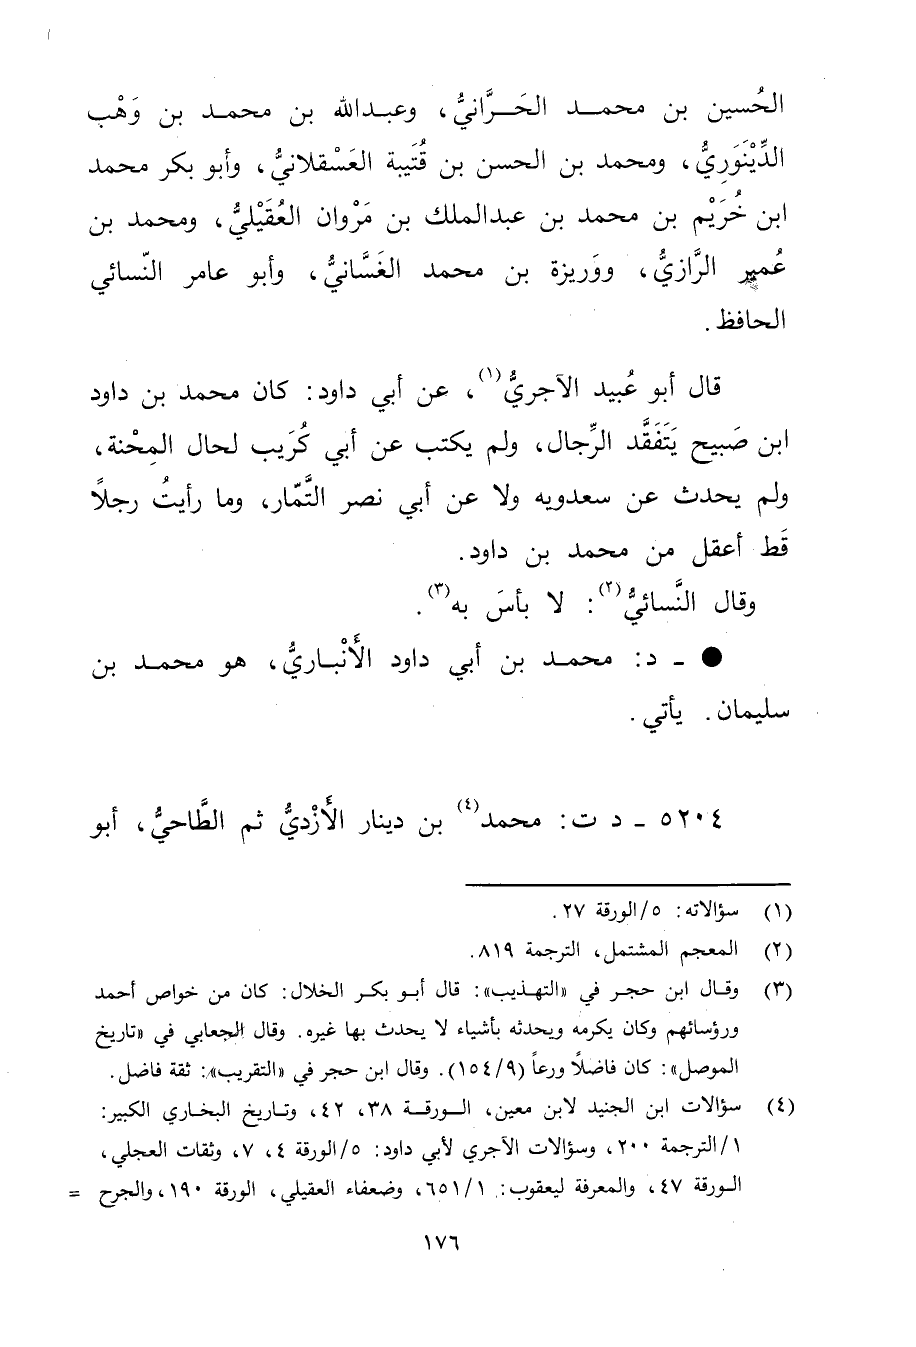 الحُسين بن محمد الحَرَّانيُّ، وعبدالله بن محمد بن وَهْب
الدِّيْنَوَريُّ، ومحمد بن الحسن بن قُتَيبة العَسْقلانيُّ، وأبو بكر محمد
ابن خُرَيْم بن محمد بن عبدالملك بن مَرْوان العُقَيْليُّ، ومحمد بن
عُمير الرَّازيُّ، ووَريزة بن محمد الغَسَّانيُّ، وأبو عامر النّسائي
الحافظ.
قال أبو عُبيد الآجريُّ(١)، عن أبي داود: كان محمد بن داود
ابن صَبيح يَتَفَقَّد الرِّجال، ولم يكتب عن أبي كُرَيب لحال المِحْنة،
ولم يحدث عن سعدويه ولا عن أبي نصر التَّمّار، وما رأيتُ رجلاً
قَط أعقل من محمد بن داود.
وقال النَّسائيُّ(٢): لا بأسَ به(٣).
● ـ د: محمد بن أبي داود الأَنْباريُّ، هو محمد بن
سليمان. يأتي.
٥٢٠٤ ـ د ت: محمد(٤) بن دينار الأَزْديُّ ثم الطَّاحيُّ، أبو
(١) سؤالاته: ٥/الورقة ٢٧.
(٢) المعجم المشتمل، الترجمة ٨١٩.
(٣) وقال ابن حجر في «التهذيب»: قال أبو بكر الخلال: كان من خواص أحمد
ورؤسائهم وكان يكرمه ويحدثه بأشياء لا يحدث بها غيره. وقال الجعابي في «تاريخ
الموصل»: كان فاضلاً ورعاً (٩/١٥٤). وقال ابن حجر في «التقريب»: ثقة فاضل.
(٤) سؤالات ابن الجنيد لابن معين، الورقة ٣٨، ٤٢، وتاريخ البخاري الكبير:
١/الترجمة ٢٠٠، وسؤالات الآجري لأبي داود: ٥/الورقة ٤، ٧، وثقات العجلي،
الورقة ٤٧، والمعرفة ليعقوب: ١/٦٥١، وضعفاء العقيلي، الورقة ١٩٠، والجرح =
١٧٦